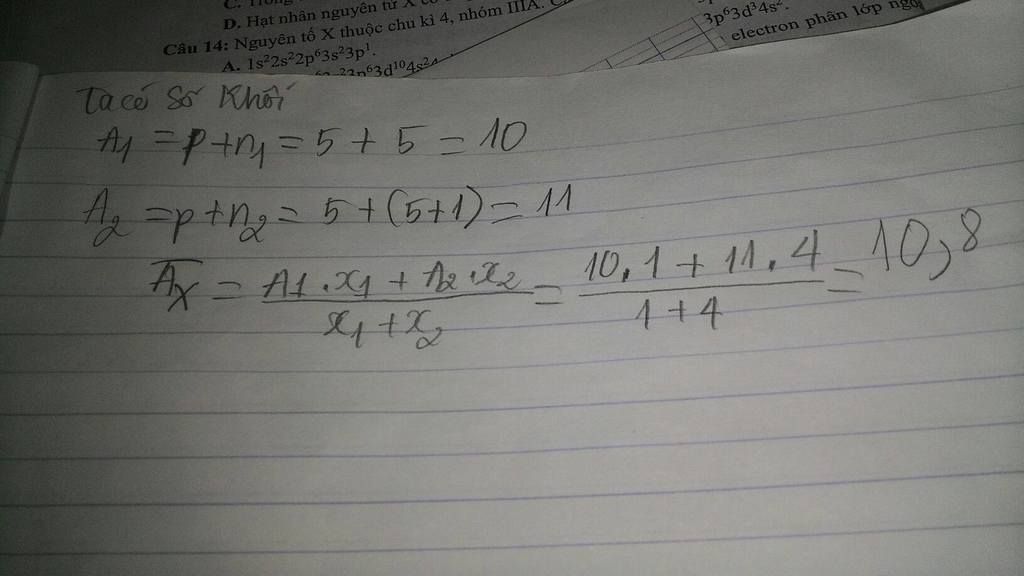 D. Hạt nhân nguyên tử X có
Câu 14: Nguyên tố X thuộc chu kì 4, nhóm IIIA. C
A. 1s²2s²2p⁶3s²3p¹.
3p⁶3d³4s².
electron phân lớp ngo
Ta có Số Khối
A₁ = p+n₁ = 5 + 5 = 10
A₂ = p+n₂ = 5+(5+1) = 11
A̅x̅ = (A1.x₁ + A₂.x₂)/(x₁+x₂) = (10.1 + 11.4)/(1+4) = 10,8